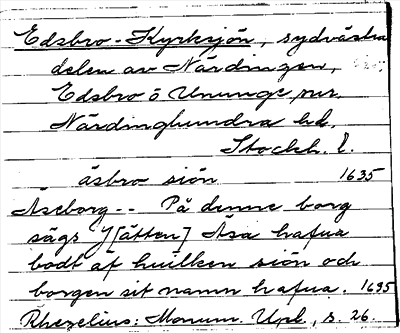 Edsbro-Kyrksjön, sydvästra
delen av Närdingen,
Edsbro o Ununge snr.
Närdinghundra hd.
Stockh. l.
äsbro siön 1635
Äseborg -- På denne borg
sägs J[ätten] Äsa hafua
bodt af huilken siön och
borgen sit namn hafua. 1635
Rhezelius: Monum. Upl., s. 26.